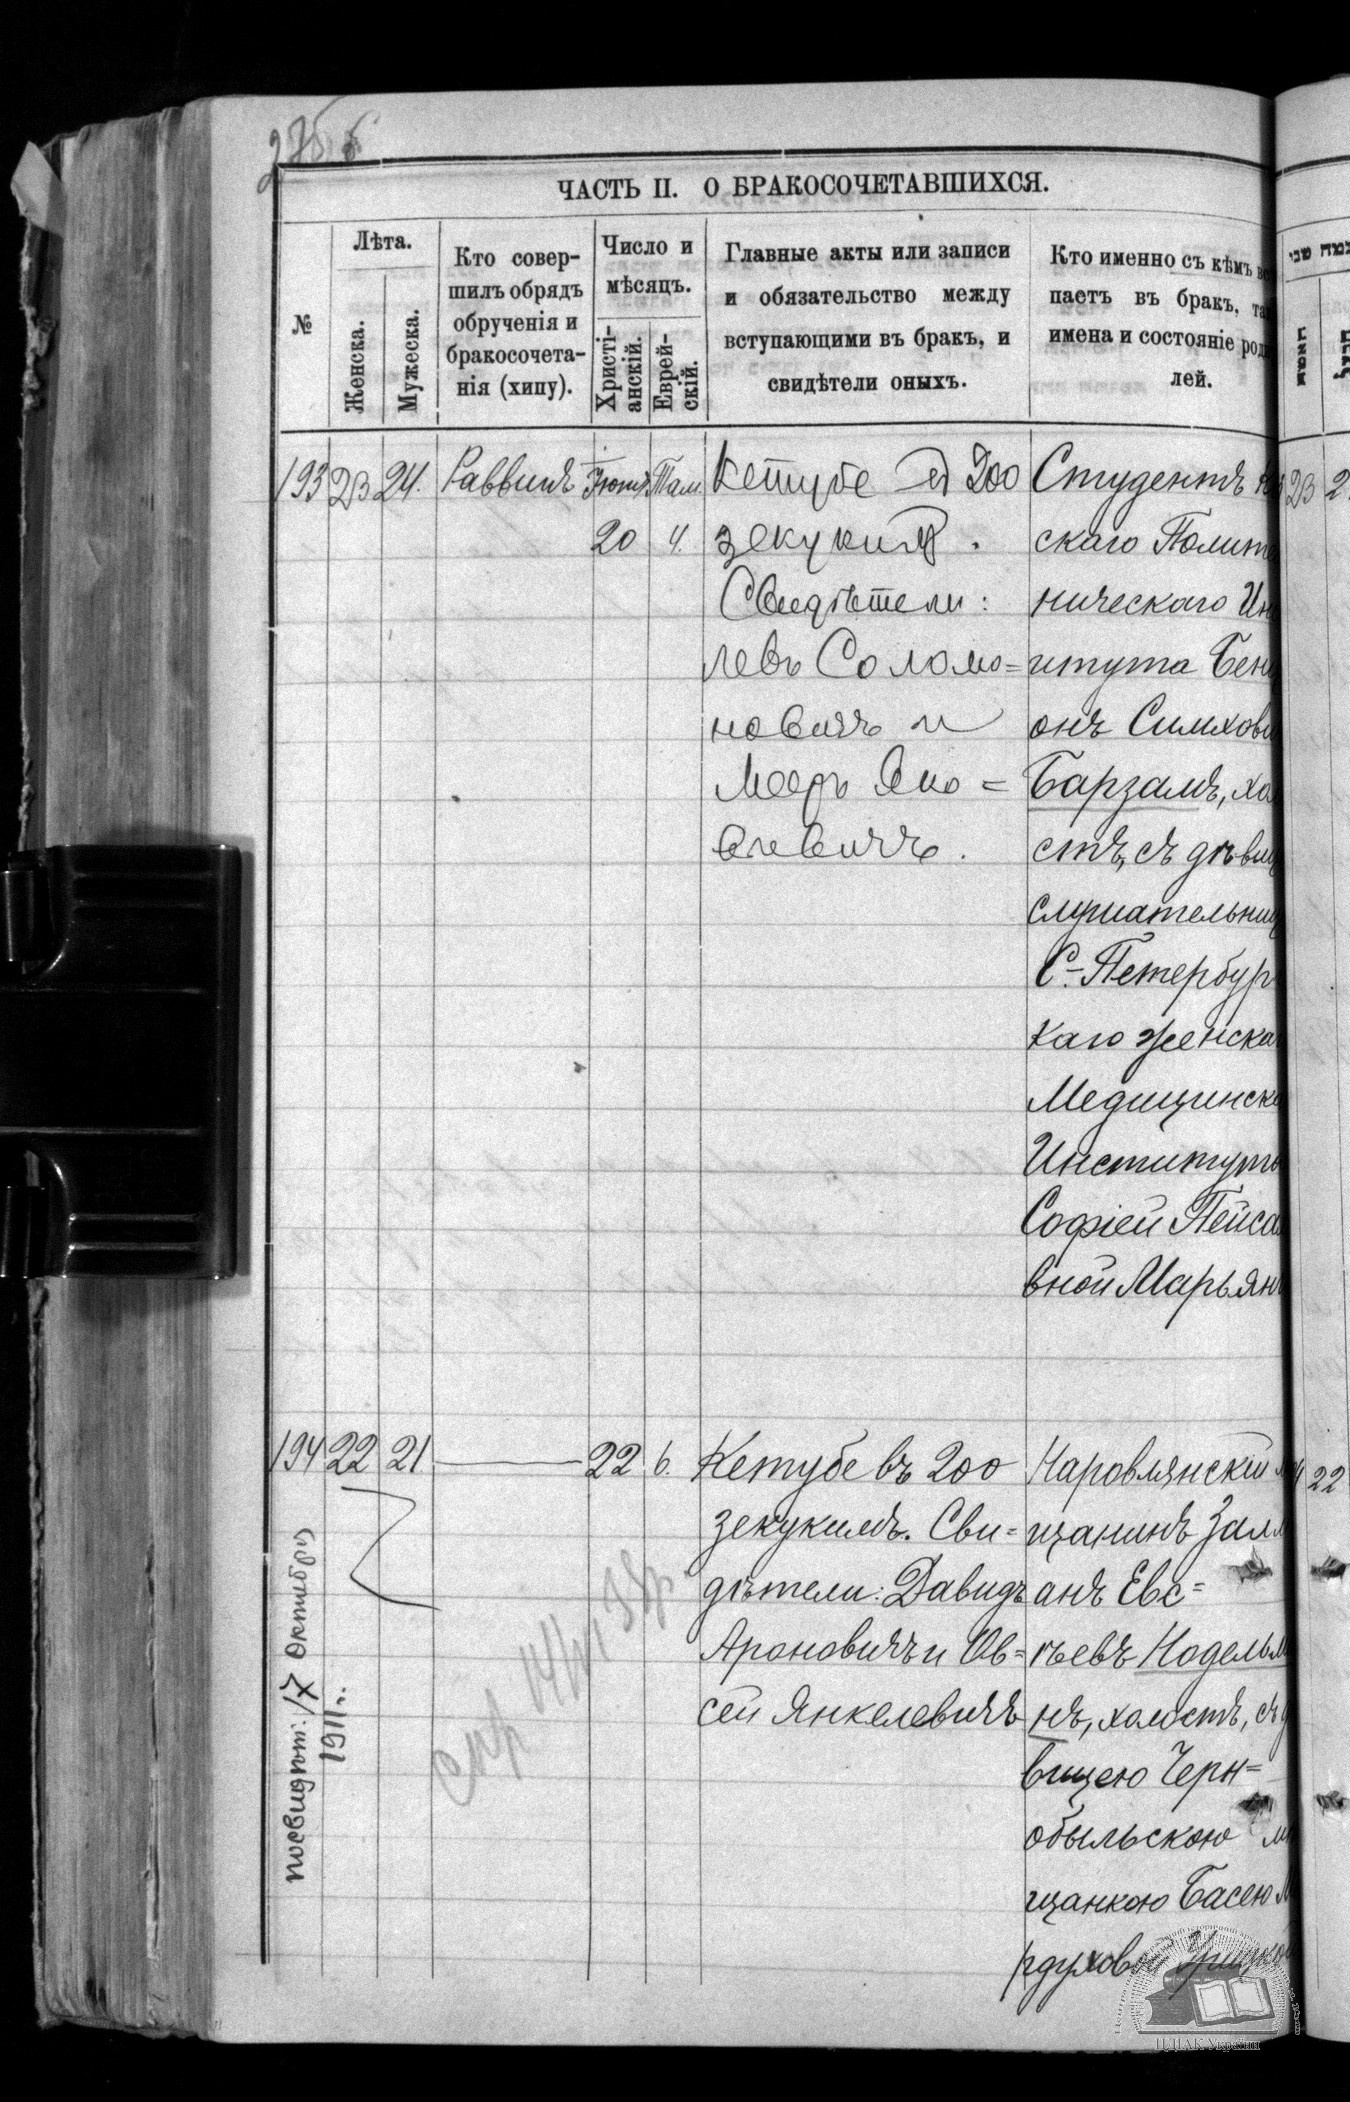 275 б
ЧАСТЬ II. О БРАКОСОЧЕТАВШИХСЯ.
№
Лѣта.
Женска.
Мужеска.
Кто совер-
шилъ обрядъ
обрученія и
бракосочета-
нія (хипу).
Число и
мѣсяцъ.
Христі-
анскій.
Еврей-
скій.
Главные акты или записи
и обязательство между
вступающими въ бракъ, и
свидѣтели оныхъ.
Кто именно съ кѣмъ вс
паетъ въ бракъ, та
имена и состояніе род
лей.
193 23 24. Раввинъ Іюнь Там.
20 4.
Кетубе въ 200
зекукимъ.
Свидѣтели:
Левъ Соломо=
новичъ и
Мееръ Яко=
влевичъ.
Студентъ
скаго Полите
ническаго Инс
титута Бенц
онъ Симхови
Барзамъ, хол
стъ, съ дѣвиц
слушательниц
С-Петербург
каго женскаг
Медицинска
Института
Софіей Пейса
вной Марьян
194 22 21 22 6.
Кетубе въ 200
зекукимъ. Сви=
дѣтели: Давидъ
Ароновичъ и Ов=
сей Янкелевичъ
Наровлянскій м
щанинъ Залм
анъ Евс=
ѣевъ Нодельма
нъ, холостъ, съ д
вицею Черн=
обыльскою м
щанкою Басею М
рдуховой Урицкой
посвидѣт. 17 Октября
1911 г.
23 2
22
ЦДІАК України